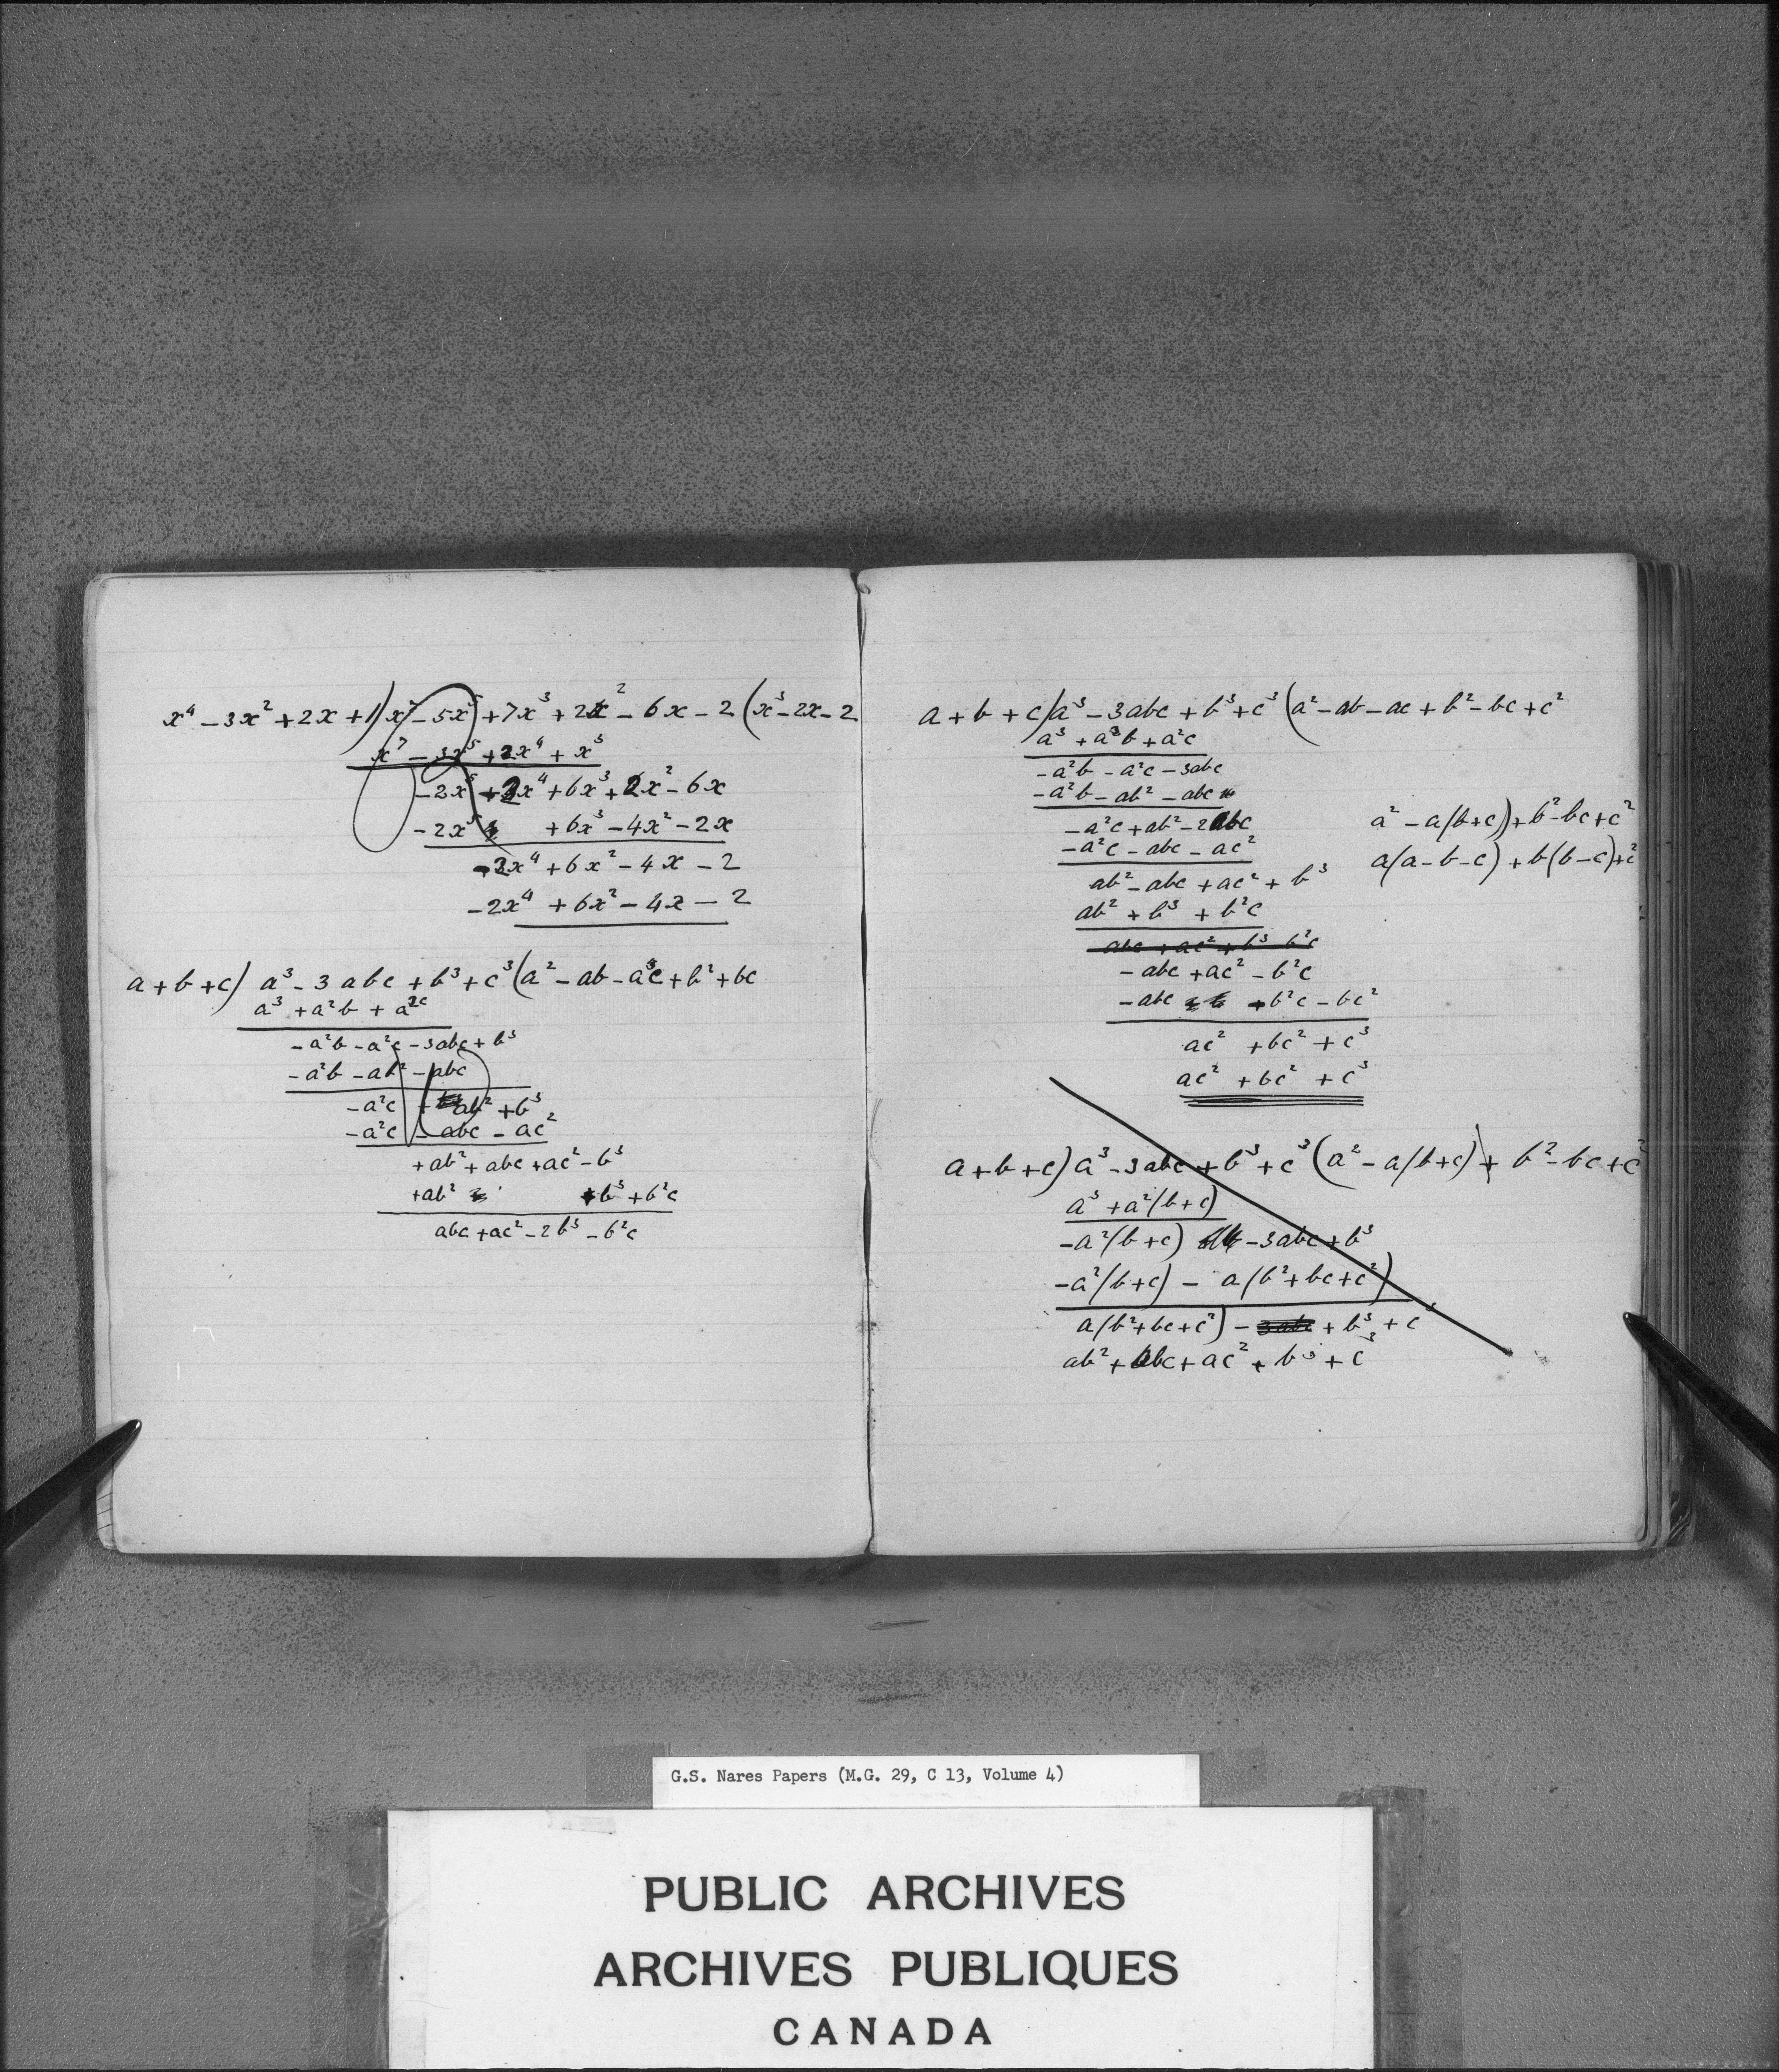 x⁴ - 3x² + 2x + 1) x⁷ - 5x⁵ + 7x³ + 2x² - 6x - 2 (x³ - 2x - 2
x⁷ - 3x⁵ + 2x⁴ + x³
-2x⁵ - 2x⁴ + 6x³ + 2x² - 6x
-2x⁵ + 6x³ - 4x² - 2x
-2x⁴ + 6x² - 4x - 2
-2x⁴ + 6x² - 4x - 2
a + b + c) a³ - 3abc + b³ + c³ (a² - ab - ac + b² + bc
a³ + a²b + a²c
-a²b - a²c - 3abc + b³
-a²b - ab² - abc
-a²c + ab² + b³
-a²c - abc - ac²
+ab² + abc + ac² - b³
+ab² + b³ + b²c
abc + ac² - 2b³ - b²c
a + b + c) a³ - 3abc + b³ + c³ (a² - ab - ac + b² - bc + c²
a³ + a²b + a²c
-a²b - a²c - 3abc
-a²b - ab² - abc
-a²c + ab² - 2abc
-a²c - abc - ac²
ab² - abc + ac² + b³
ab² + b³ + b²c
abc + ac² + b³ b²c
-abc + ac² - b²c
-abc - b²c - bc²
ac² + bc² + c³
ac² + bc² + c³
a² - a(b+c) + b² - bc + c²
a(a - b - c) + b(b - c) + c²
a + b + c) a³ - 3abc + b³ + c³ (a² - a(b+c) + b² - bc + c²
a³ + a²(b+c)
-a²(b+c) - 3abc + b³
-a²(b+c) - a(b² + bc + c²)
a(b² + bc + c²) - 3abc + b³ + c³
ab² + abc + ac² + b³ + c³
G.S. Nares Papers (M.G. 29, C 13, Volume 4)
PUBLIC ARCHIVES
ARCHIVES PUBLIQUES
CANADA